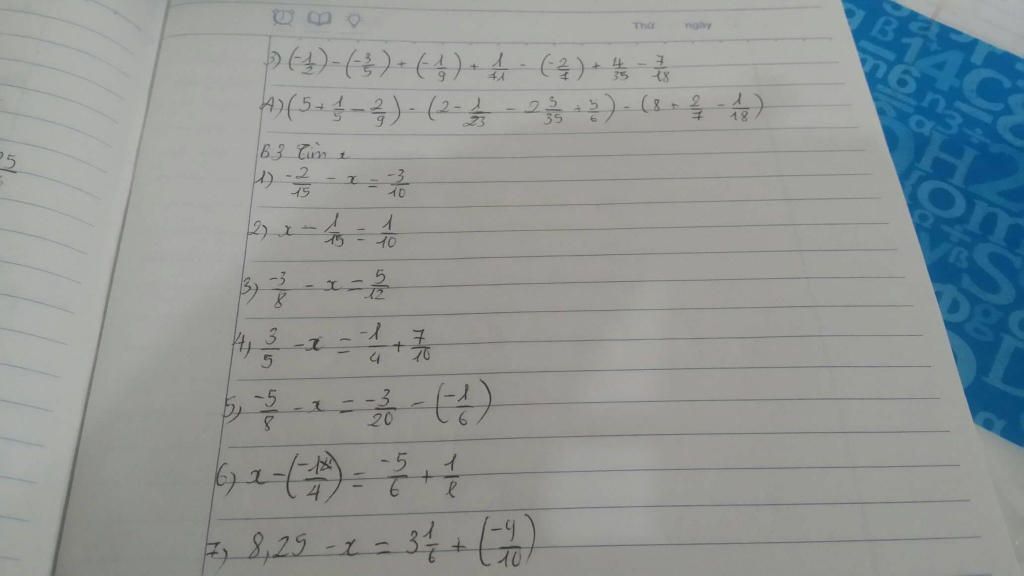 Thứ ngày
3) (-1/2) - (-3/5) + (-1/9) + 1/71 - (-2/7) + 4/35 - 7/18
4) (5 + 1/5 - 2/9) - (2 - 1/23 - 2 3/35 + 5/6) - (8 + 2/7 - 1/18)
B3 Tìm x
1) -2/15 - x = -3/10
2) x - 1/15 = 1/10
3) -3/8 - x = 5/12
4) 3/5 - x = -1/4 + 7/10
5) -5/8 - x = -3/20 - (-1/6)
6) x - (-1/4) = -5/6 + 1/8
7) 8,25 - x = 3 1/6 + (-9/10)